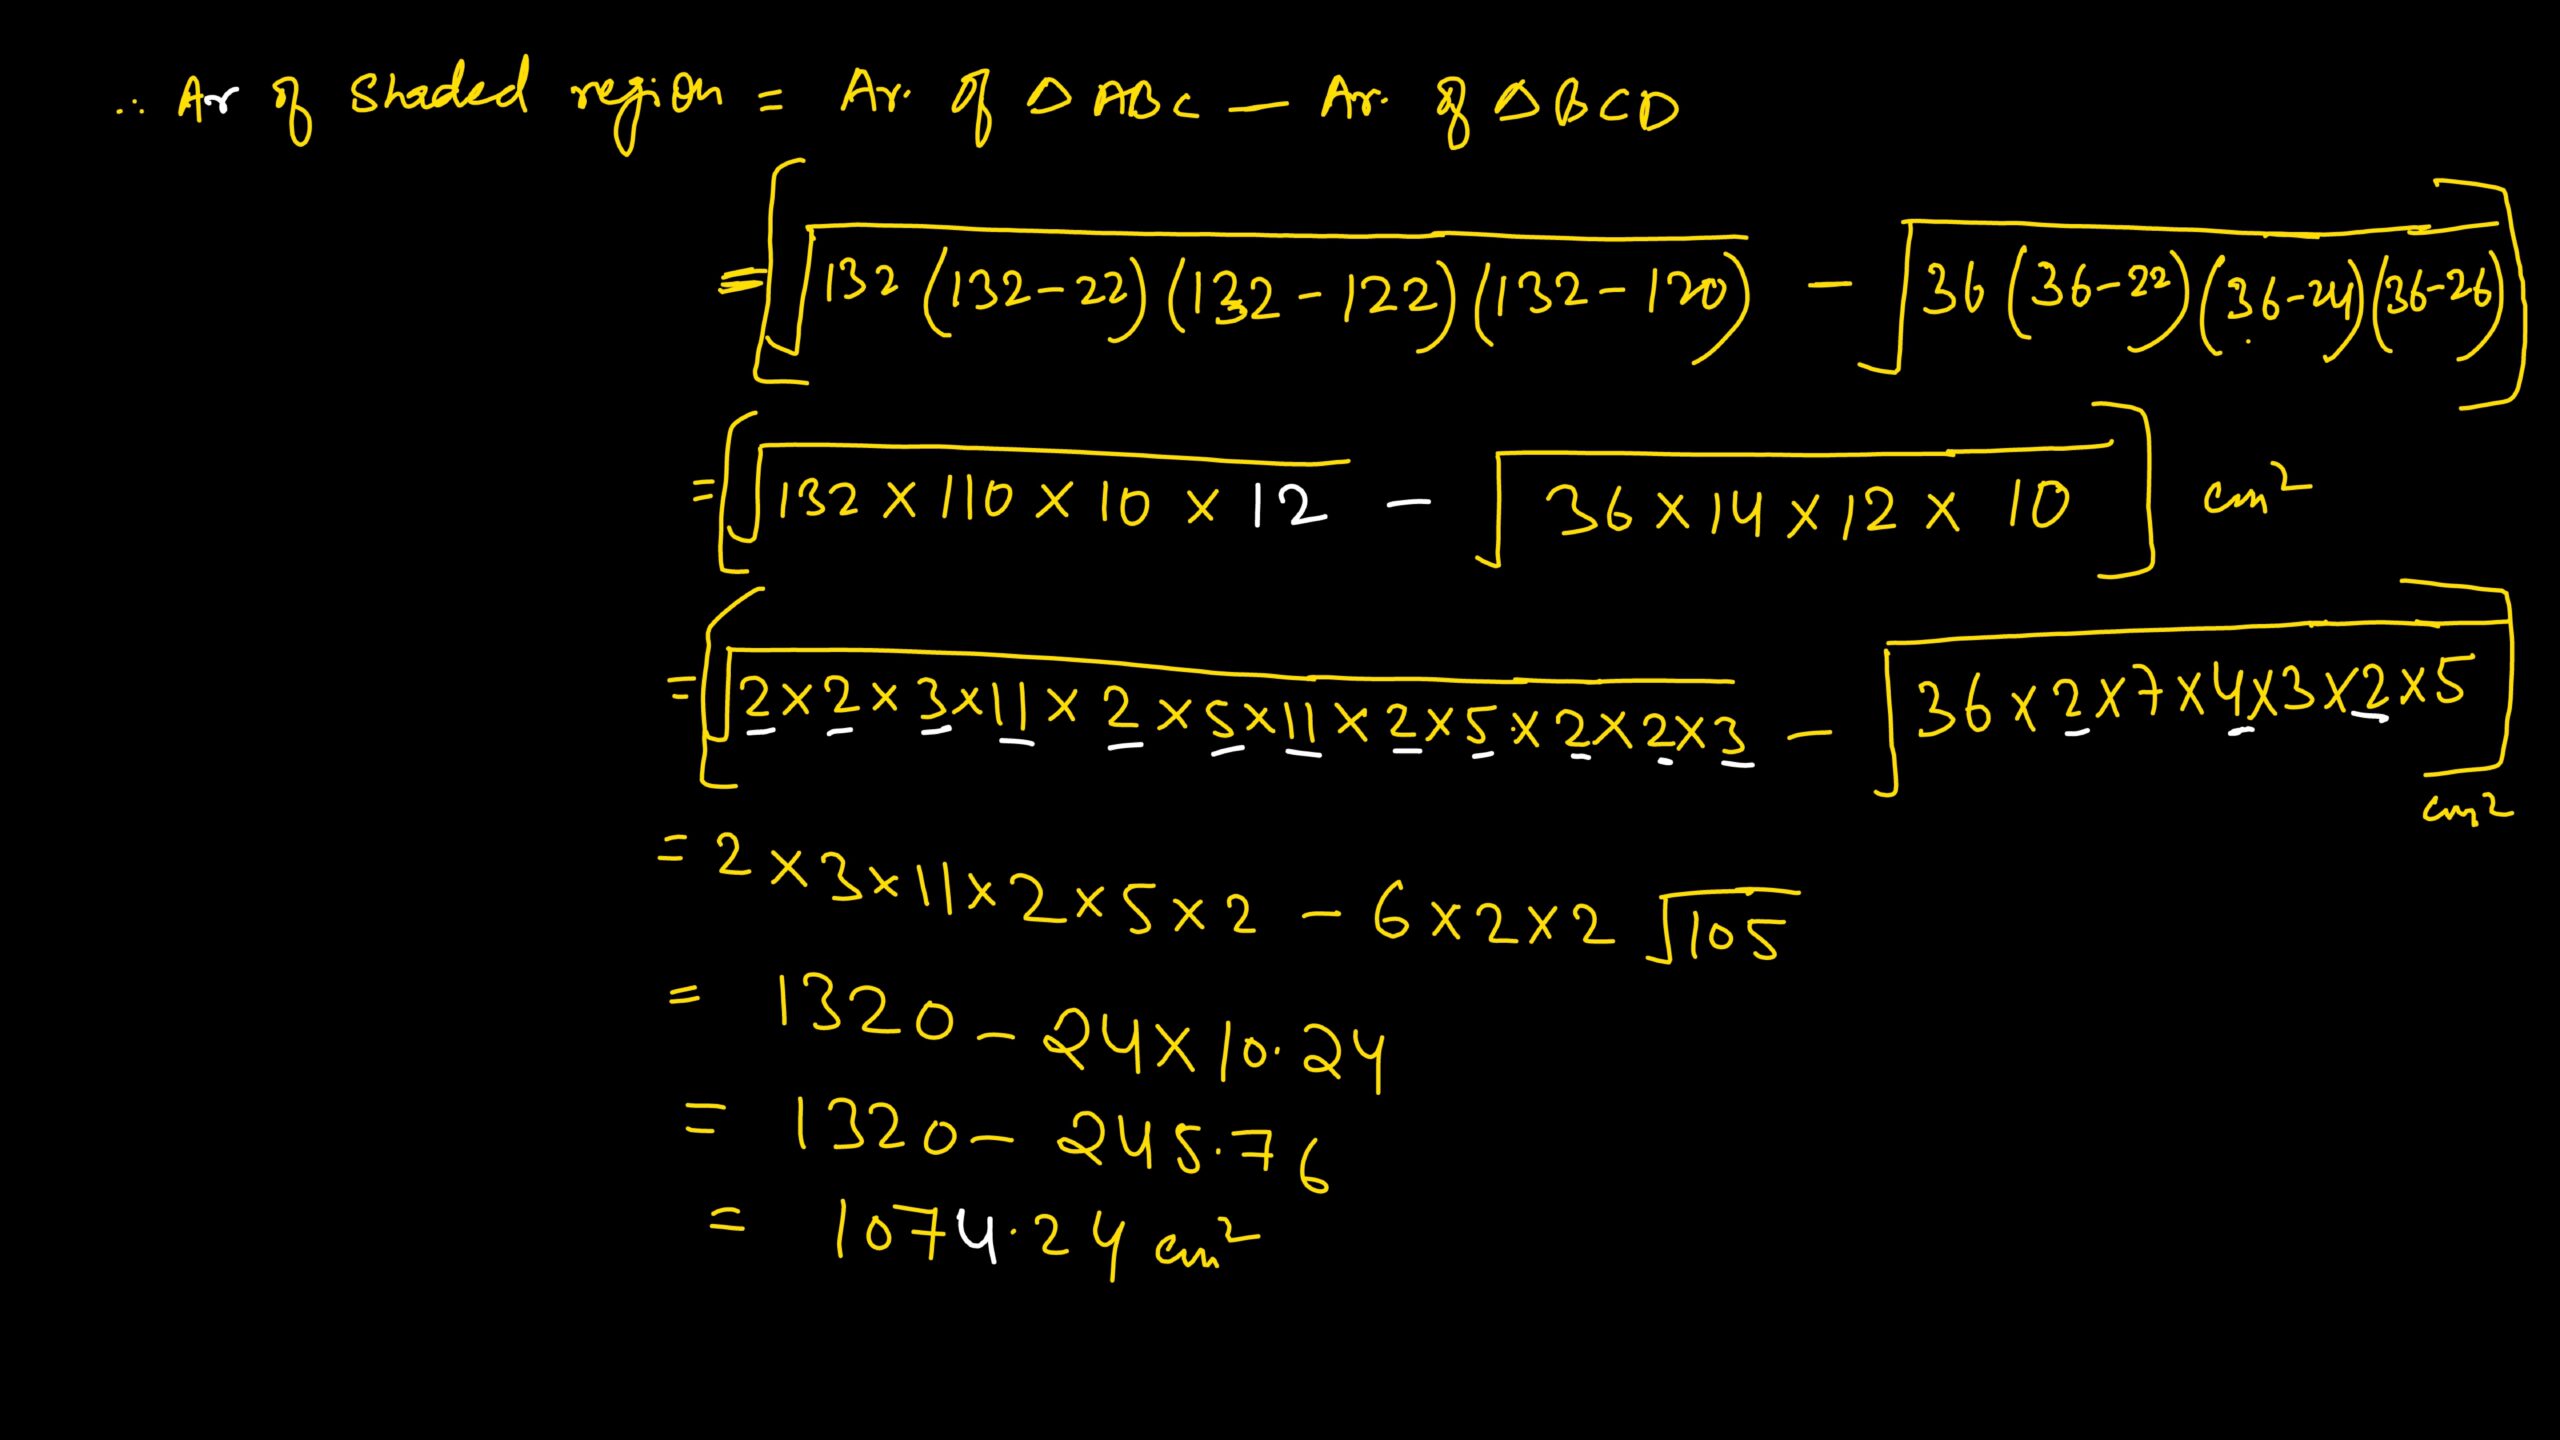 ∴ Ar of Shaded region = Ar. of △ ABC — Ar. of △ BCD
= [√132 (132-22) (132-122) (132-120) - √36 (36-22) (36-24) (36-26)]
= [√132 × 110 × 10 × 12 - √36 × 14 × 12 × 10] cm²
= [√2×2×3×11×2×5×11×2×5×2×2×3 - √36×2×7×4×3×2×5] cm²
= 2×3×11×2×5×2 - 6×2×2 √105
= 1320 - 24×10.24
= 1320 - 245.76
= 1074.24 cm²